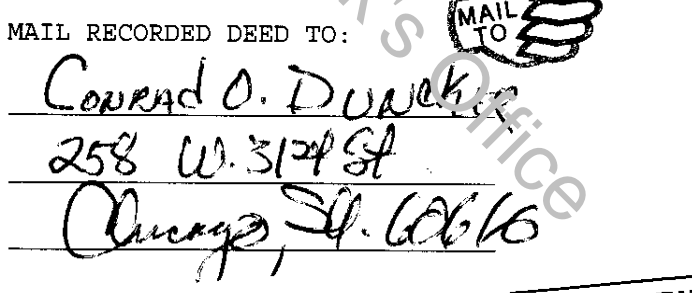 MAIL RECORDED DEED TO:
MAIL TO
Conrad O. Duncker
258 W. 31st St
Chicago, Ill. 60616
's Office